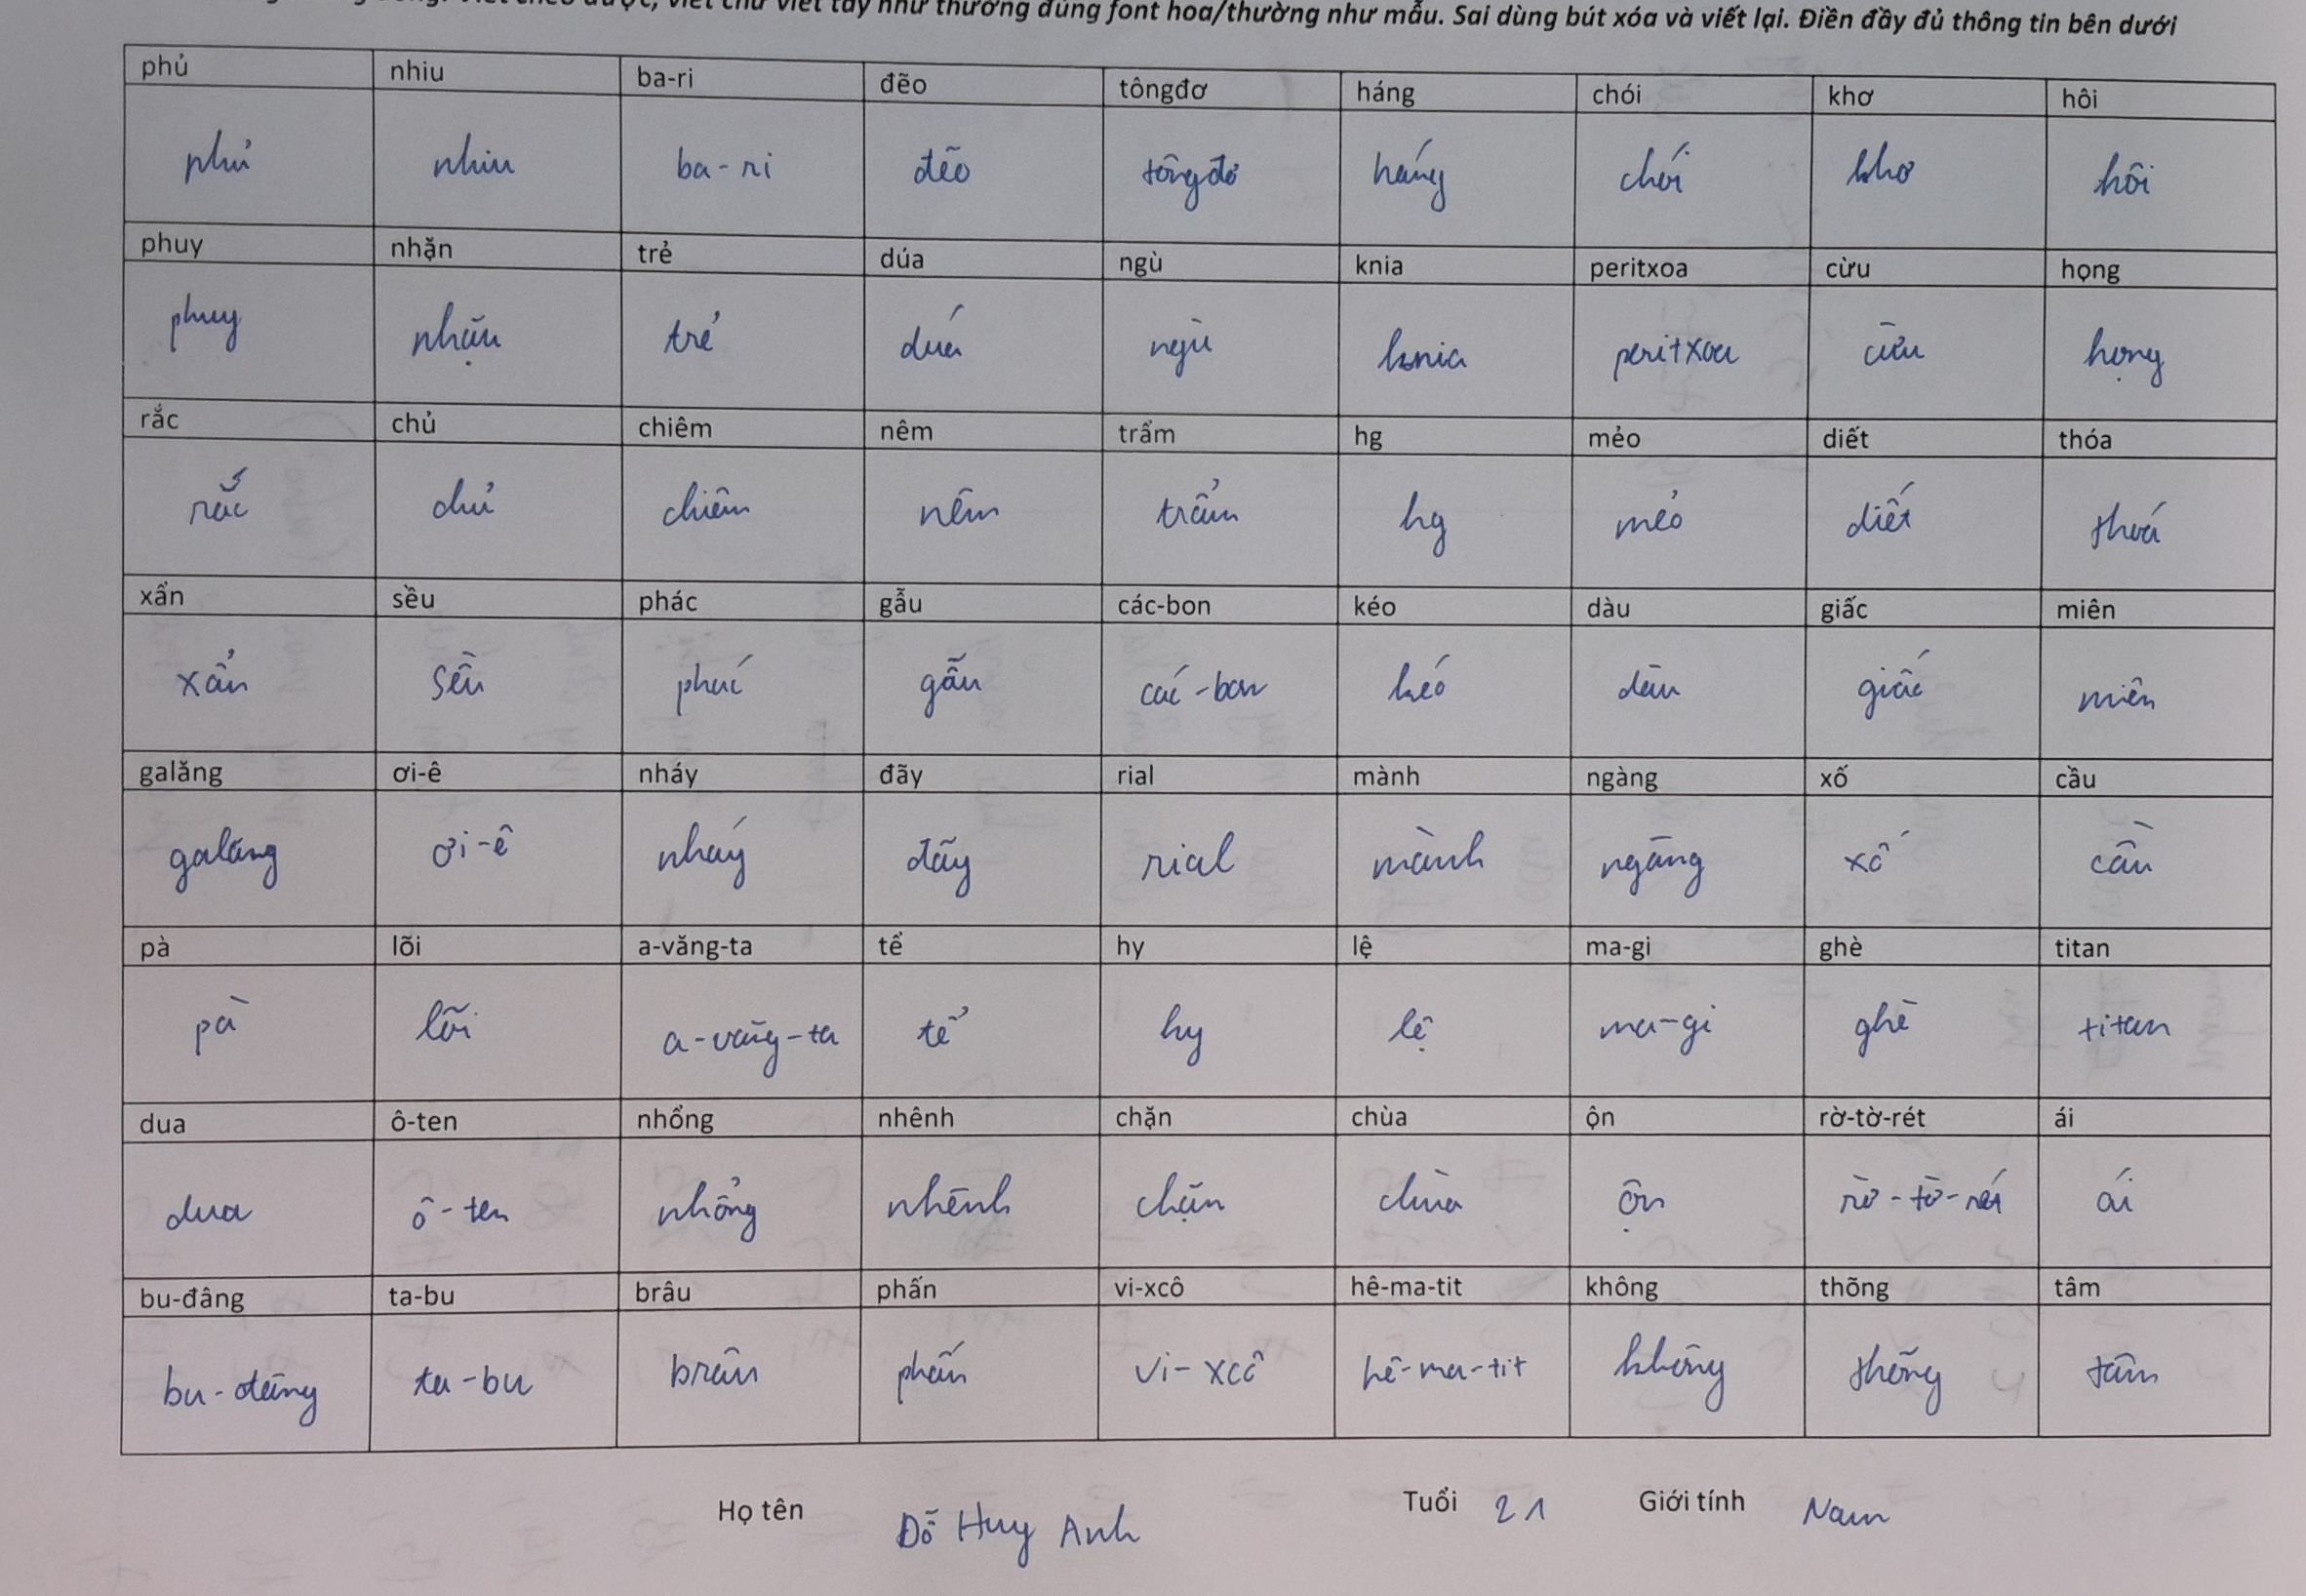 viết chữ viết tay như thường đúng font hoa/thường như mẫu. Sai dùng bút xóa và viết lại. Điền đầy đủ thông tin bên dưới
phủ nhiu ba-ri đẽo tôngđơ háng chói khơ hôi
phủ nhiu ba-ri đẽo tôngđơ háng chói khơ hôi
phuy nhặn trẻ dúa ngù knia peritxoa cừu họng
phuy nhặn trẻ dúa ngù knia peritxoa cừu họng
rắc chủ chiêm nêm trẩm hg mẻo diết thóa
rắc chủ chiêm nêm trẩm hg mẻo diết thoá
xẩn sều phác gẫu các-bon kéo dàu giấc miên
xẩn sều phác gẫu các-bon kéo dàu giấc miên
galăng ơi-ê nháy đãy rial mành ngàng xố cầu
galăng ơi-ê nháy đãy rial mành ngàng xố cầu
pà lõi a-văng-ta tể hy lệ ma-gi ghè titan
pà lõi a-văng-ta tể hy lệ ma-gi ghè titan
dua ô-ten nhổng nhênh chặn chùa ộn rờ-tờ-rét ái
dua ô-ten nhổng nhênh chặn chùa ộn rờ-tờ-rét ái
bu-đâng ta-bu brâu phấn vi-xcô hê-ma-tit không thõng tâm
bu-đâng ta-bu brâu phấn vi-xcô hê-ma-tit không thõng tâm
Họ tên Đỗ Huy Anh Tuổi 21 Giới tính Nam